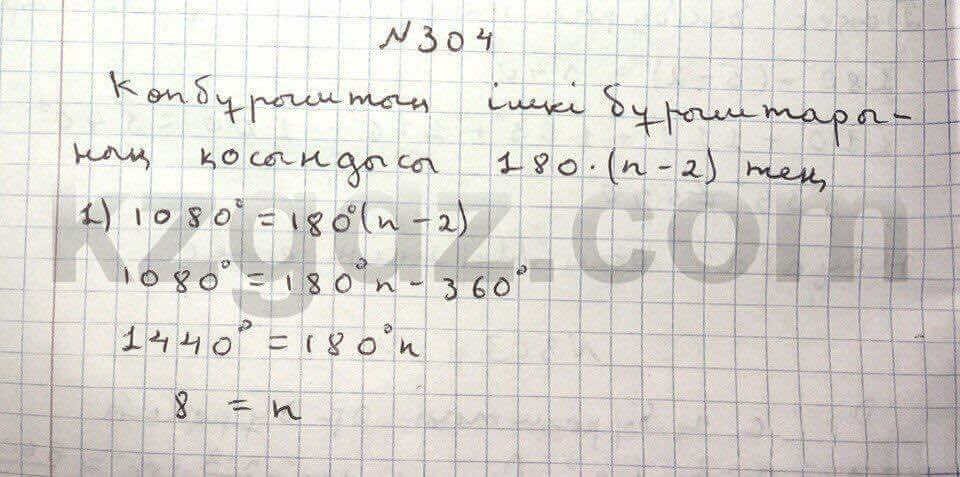 N304
Көпбұрыштың ішкі бұрыштары-
ның қосындысы 180·(n-2) тең
1) 1080° = 180°(n-2)
1080° = 180°n - 360°
1440° = 180°n
8 = n
kzgdz.com